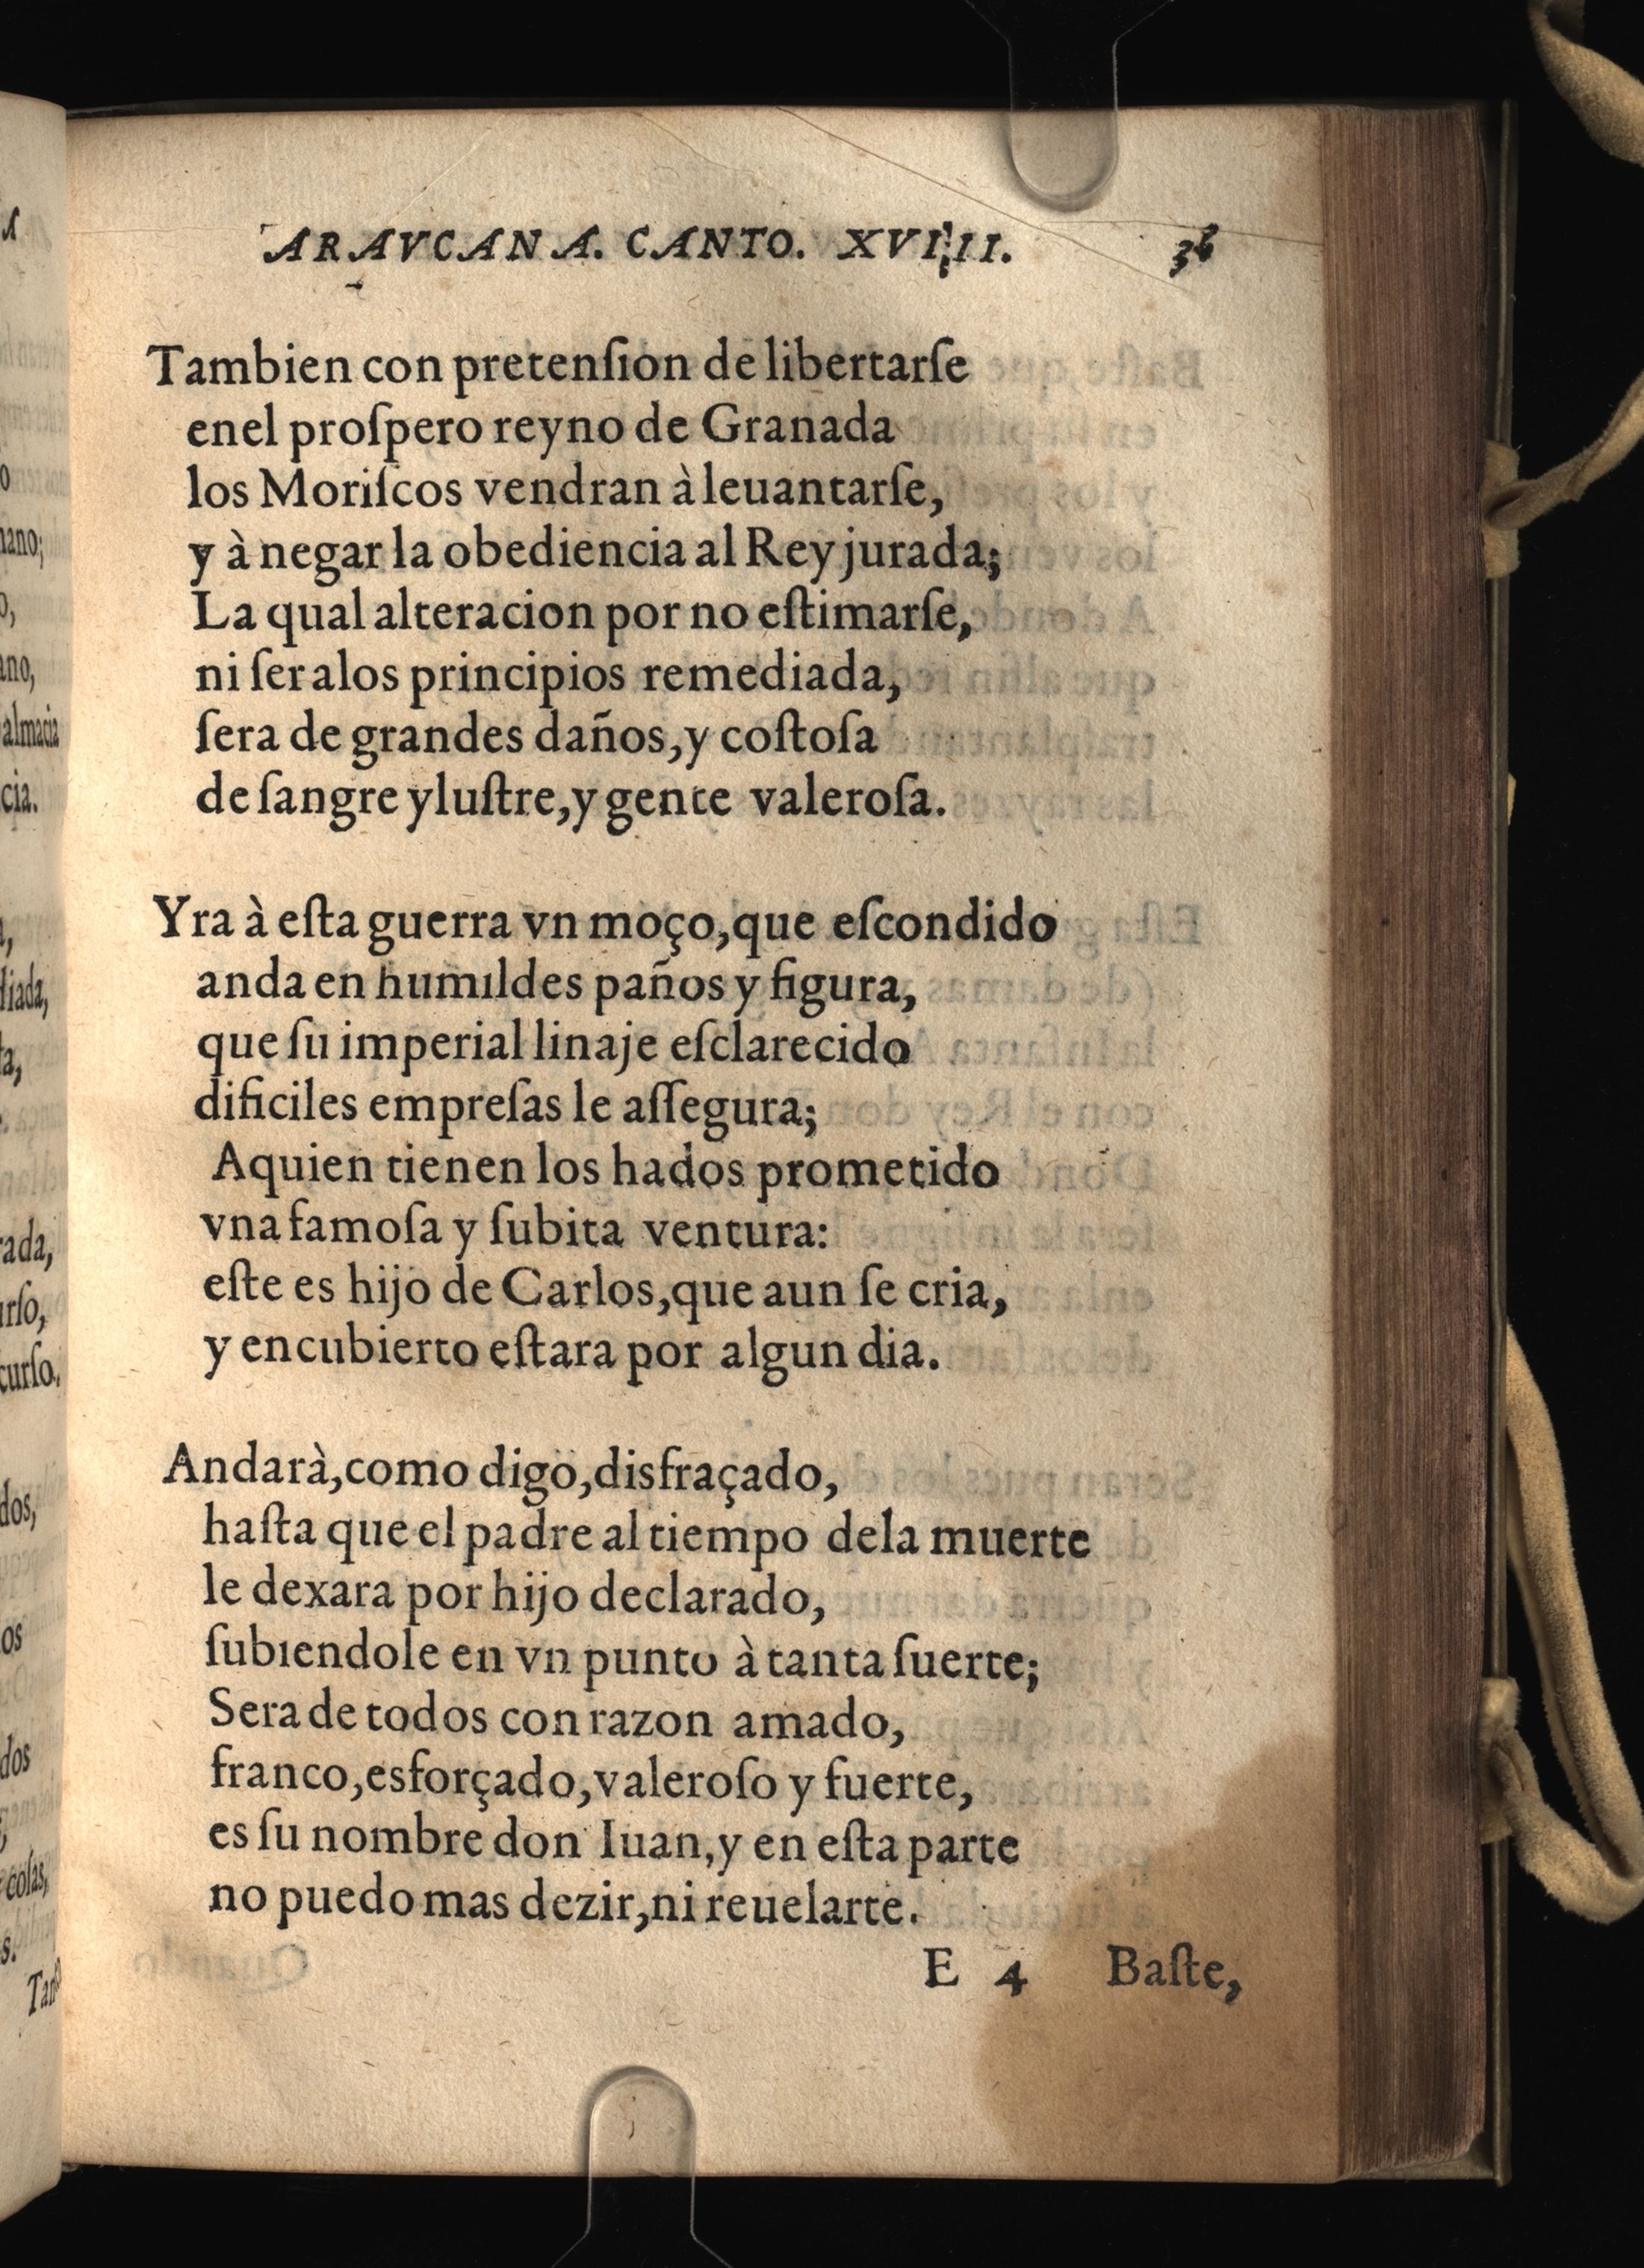 ARAVCANA. CANTO. XVIIII. 36
Tambien con pretenſion de libertarſe
enel proſpero reyno de Granada
los Moriſcos vendran à leuantarſe,
y à negar la obediencia al Rey jurada;
La qual alteracion por no eſtimarſe,
ni ſer alos principios remediada,
ſera de grandes daños, y coſtoſa
de ſangre yluſtre, y gente valeroſa.
Yra à eſta guerra vn moço, que eſcondido
anda en humildes paños y figura,
que ſu imperial linaje eſclarecido
dificiles empreſas le aſſegura;
Aquien tienen los hados prometido
vna famoſa y ſubita ventura:
eſte es hijo de Carlos, que aun ſe cria,
y encubierto eſtara por algun dia.
Andarà, como digo, disfraçado,
haſta que el padre al tiempo dela muerte
le dexara por hijo declarado,
ſubiendole en vn punto à tanta ſuerte;
Sera de todos con razon amado,
franco, esforçado, valeroſo y fuerte,
es ſu nombre don Iuan, y en eſta parte
no puedo mas dezir, ni reuelarte.
E 4 Baſte,